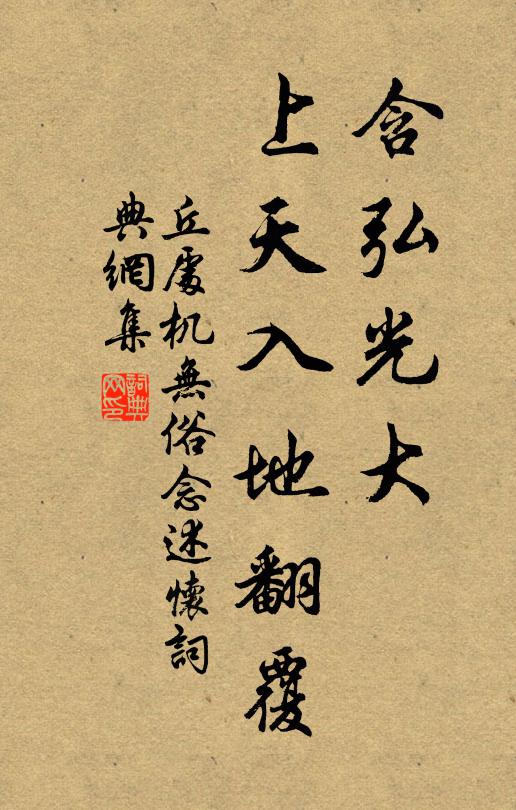 含弘光大
上天入地翻覆
丘處机無俗念述懷詞
典網集
詞典网印